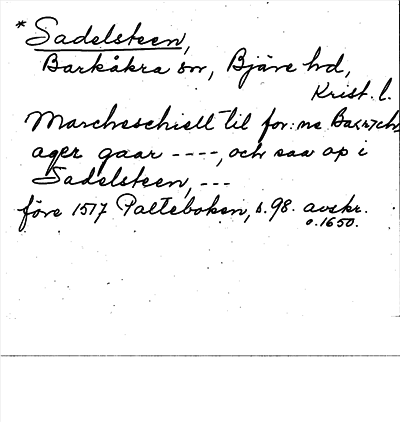 * Sadelsteen,
Barkåkra sn, Bjäre hd,
Krist. l.
Marcheschiell til for:ne
ager gaar ----, och saa op i
Sadelsteen, ---
före 1517 Palteboken, s. 98. avskr.
o. 1650.